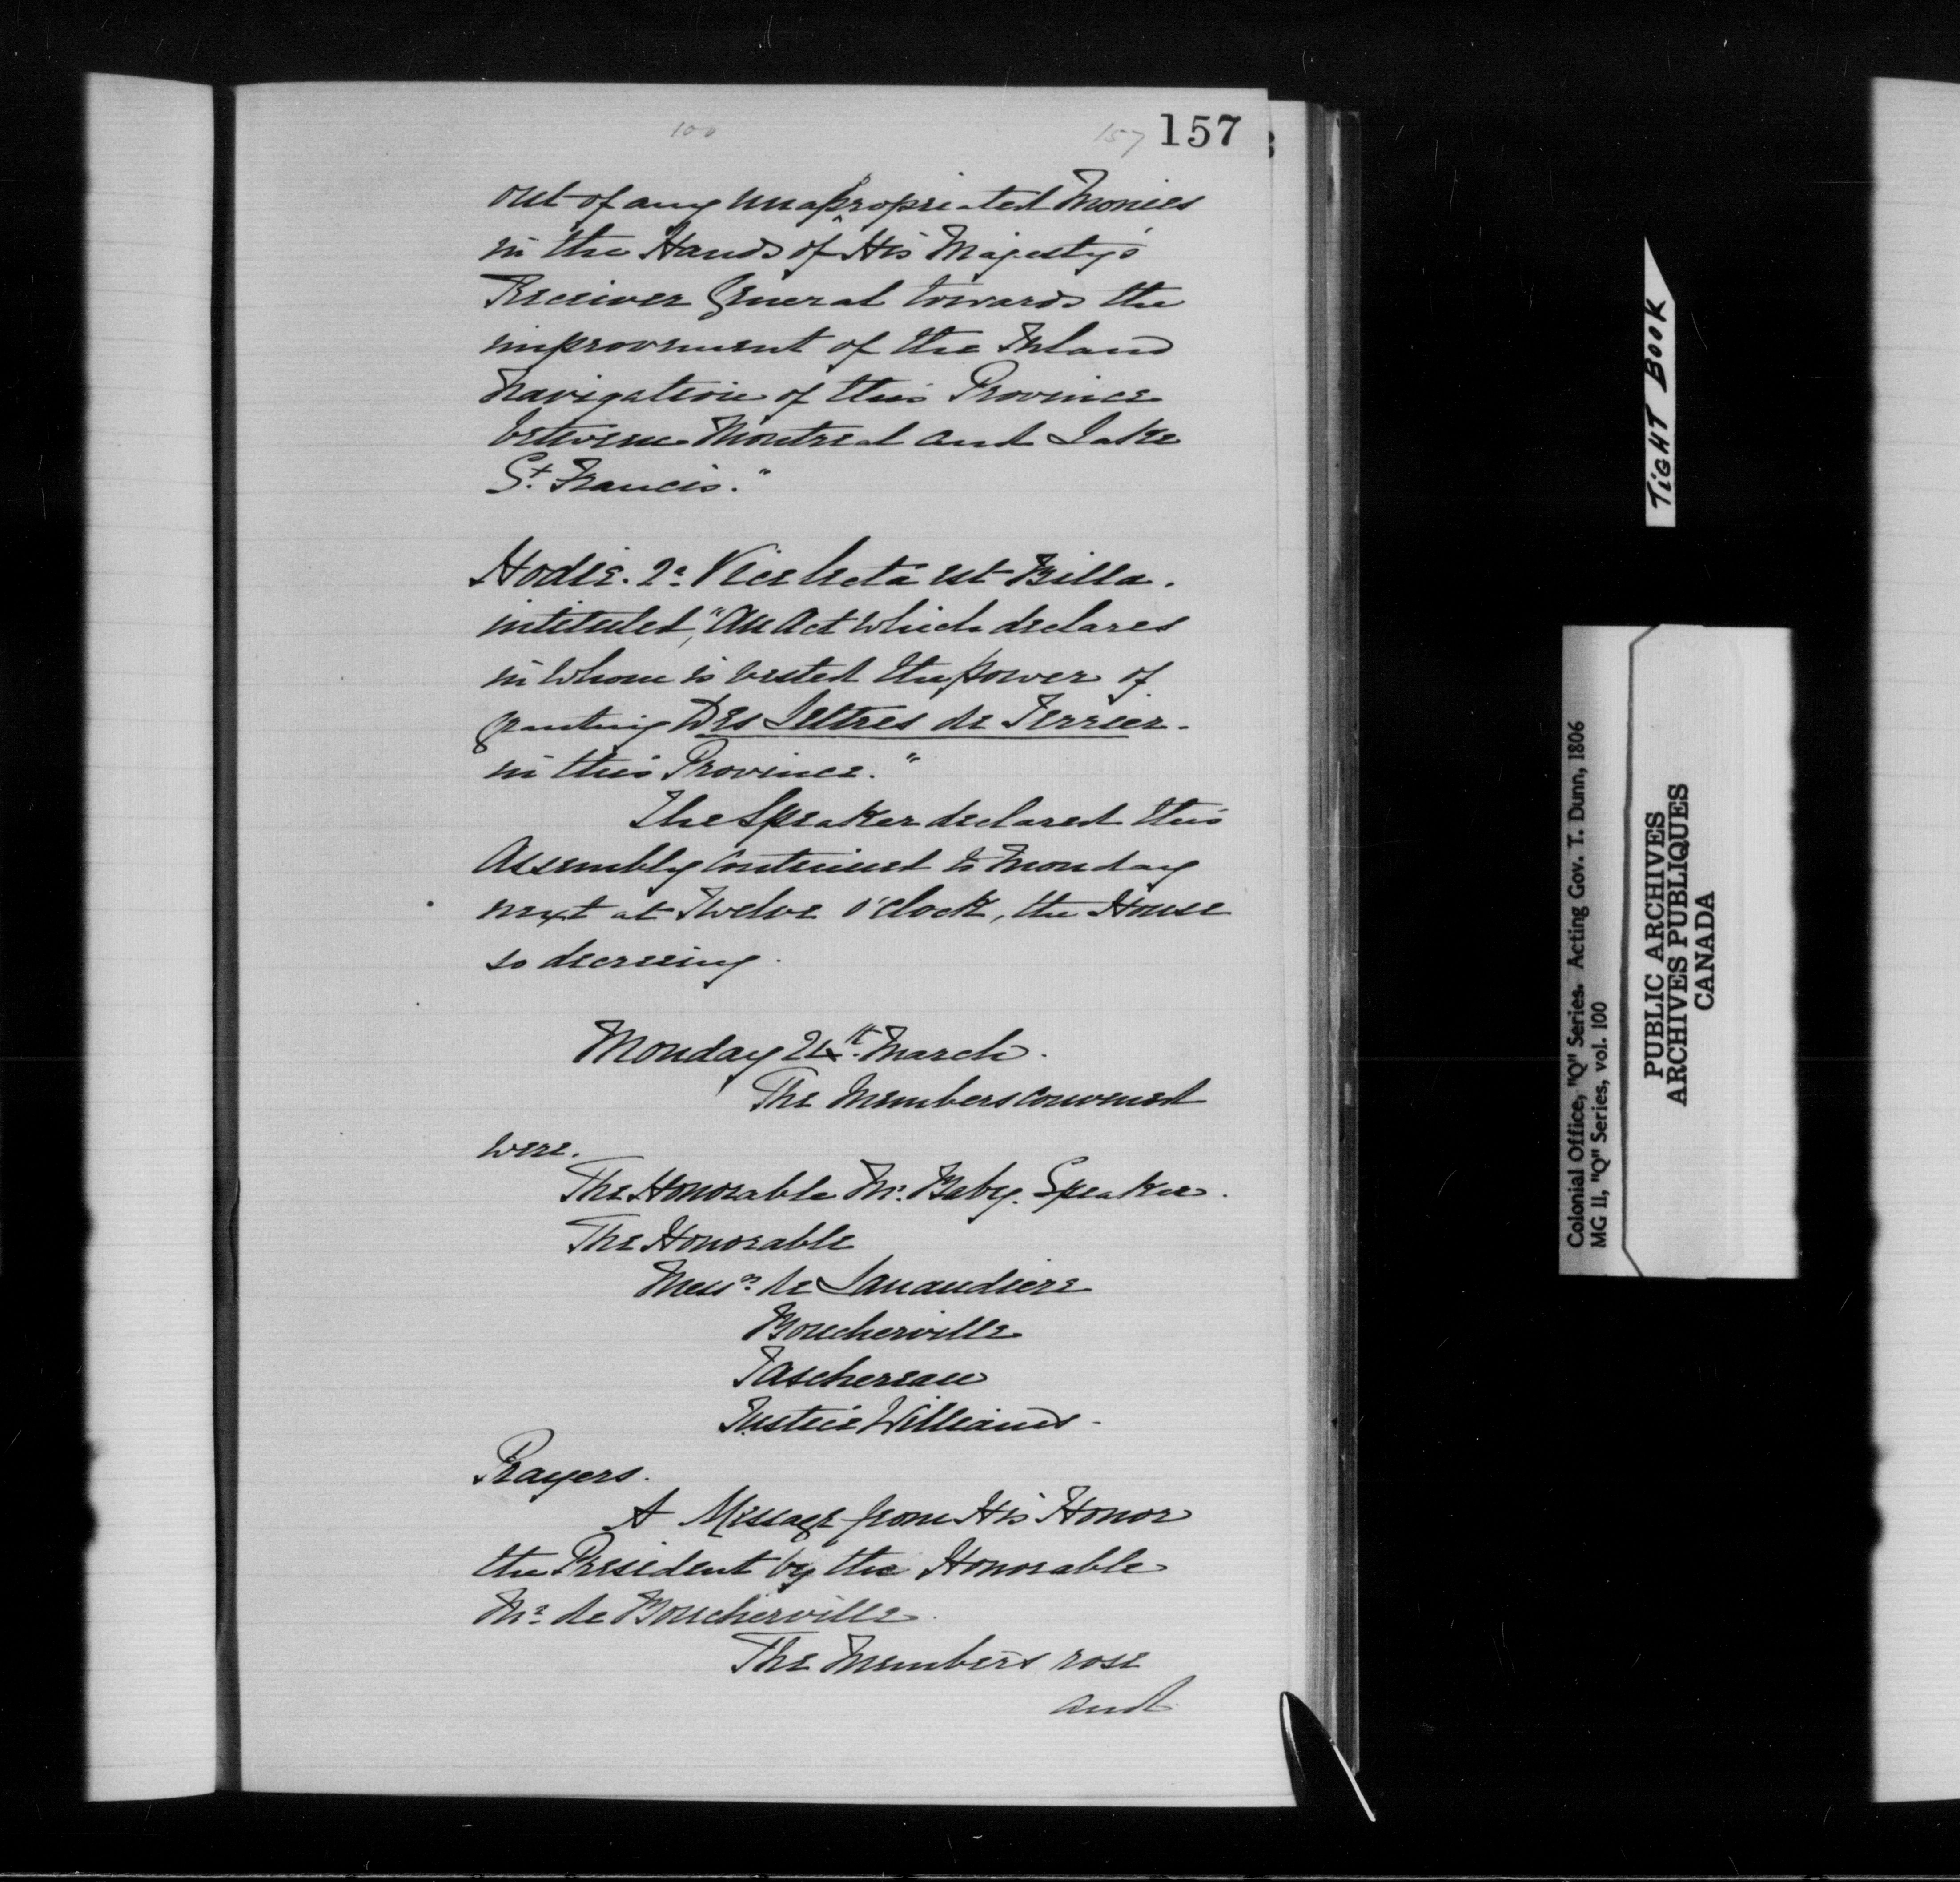 100
157 157
out of any unapropriated Monies
in the Hands of His Majesty's
Receiver General towards the
improvement of the Inland
Navigation of this Province
between Montreal and Lake
St. Francis."
Hodié. 2a Vice lecta est Billa.
intituled, "An Act which declares
in whom is vested the power of
granting Des Lettres de Terrier.
in this Province."
The Speaker declared this
Assembly continued to Monday
next at Twelve o'clock, the House
so decreeing.
Monday 24th March.
The Members convened
were.
The Honorable Mr. Baby. Speaker.
The Honorable
Messrs. de Lanaudiere
Boucherville
Taschereau
Justice Williams.
Prayers.
A Message from His Honor
the President by the Honorable
Mr. de Boucherville.
The Members rose
and
TIGHT BOOK
Colonial Office, "Q" Series. Acting Gov. T. Dunn, 1806
MG 11, "Q" Series, vol. 100
PUBLIC ARCHIVES
ARCHIVES PUBLIQUES
CANADA